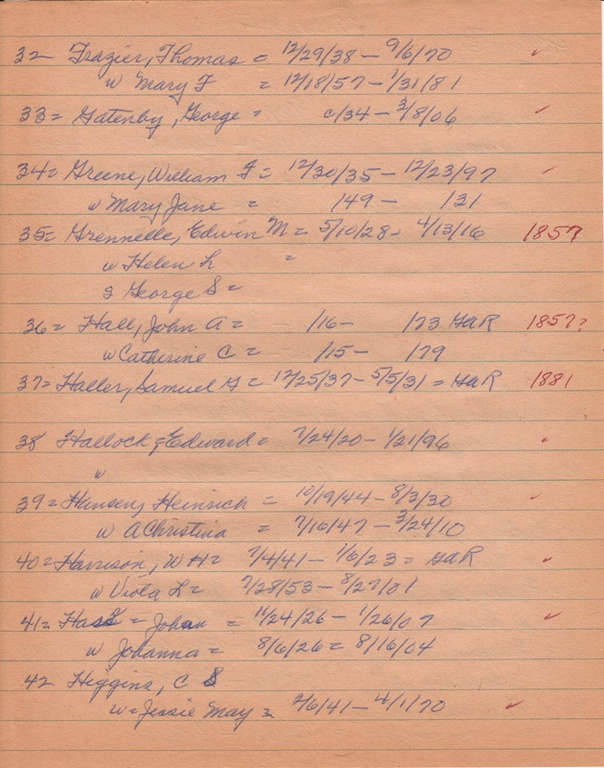 32 Frazier, Thomas = 12/29/38 - 9/6/70 ✓
w Mary F = 12/18/57 - 1/31/81
33 = Gatenby, George = c/34 - 3/8/06 ✓
34 = Greene, William F = 12/30/35 - 12/23/97 ✓
w Mary Jane = /49 - /31
35 = Grennelle, Edwin M = 5/10/28 - 4/13/16 1857
w Helen L =
s George S =
36 = Hall, John A = /16 - /73 GAR 1857?
w Catherine C = /15 - /79
37 = Haller, Samuel G = 12/25/37 - 5/5/31 = GAR 1881
38 Hallock, Edward = 7/24/20 - 1/21/96 ✓
w
39 = Hansen, Heinrich = 10/19/44 - 8/3/30 ✓
w A Christina = 7/16/47 - 3/24/10
40 = Harrison, W H = 7/4/41 - 1/6/23 = GAR ✓
w Viola L = 7/28/53 - 8/27/01
41 = = Johan = 11/24/26 - 1/26/07 ✓
w Johanna = 8/6/26 = 8/16/04
42 Higgins, C S
w = Jessie May = /6/41 - 4/1/70 ✓